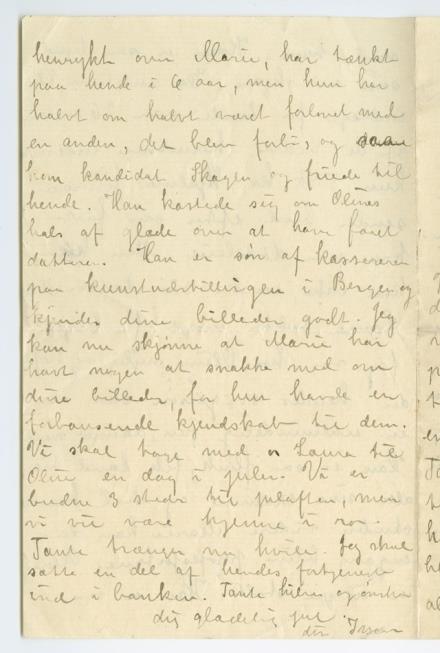 henrykt over Marie, har tænkt
paa hende i 6 aar, men hun har
halvt om halvt været forlovet med
en anden, det blev forbi, og saa
kom kandidat Skagen og friede til
hende. Han kastede sig om Olines
hals af glæde over at have faaet
datteren. Han er søn af kassereren
paa kunstudstillingen i Bergen og
kjender dine billeder godt. Jeg
kan nu skjønne at Marie har
havt nogen at snakke med om
dine billeder, for hun havde en
forbausende kjendskab til dem.
Vi skal tage med Laura til
Oline en dag i julen. Vi er
budne 3 steder til julaften, men
vi vil være hjemme i ro.
Tante trænger nu hvile. Jeg skal
sætte en del af hendes fortjeneste
ind i banken. Tante hilser og ønsker
dig glædelig jul.
din Inger